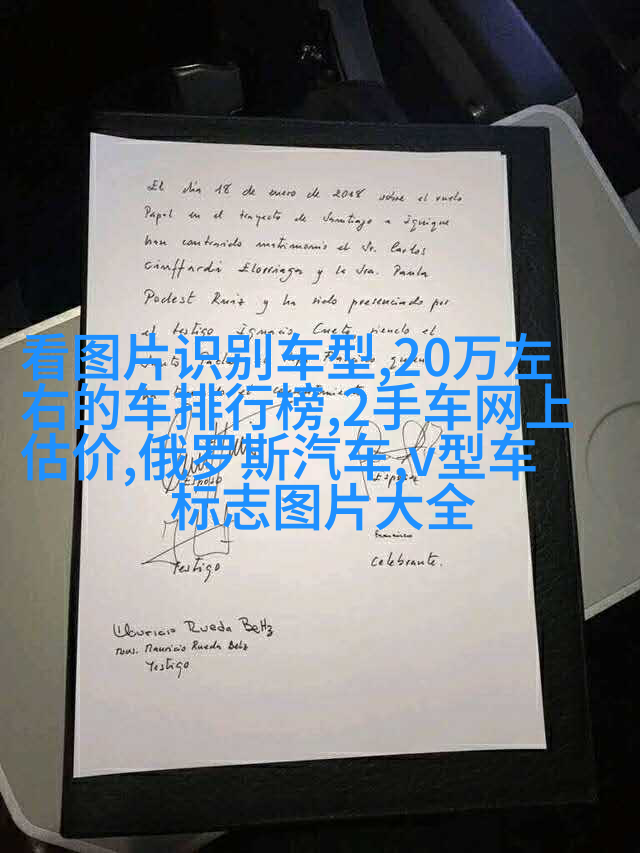 El día 18 de enero de 2018 sobre el vuelo
Papal en el trayecto de Santiago a Iquique
han contraido matrimonio el Sr. Carlos
Ciuffardi Elorriaga y la Sra. Paula
Podest Ruiz y ha sido presenciado por
el testigo Ignacio Cueto siendo el
Santo Padre Francisco quien
看图片识别车型,20万左
右的车排行榜,2手车网上
估价,俄罗斯汽车,v型车
标志图片大全
Esposo
Esposa
Francisco
Testigo
Celebrante.
Mauricio Rueda Beltz
Mons. Mauricio Rueda Beltz
Testigo